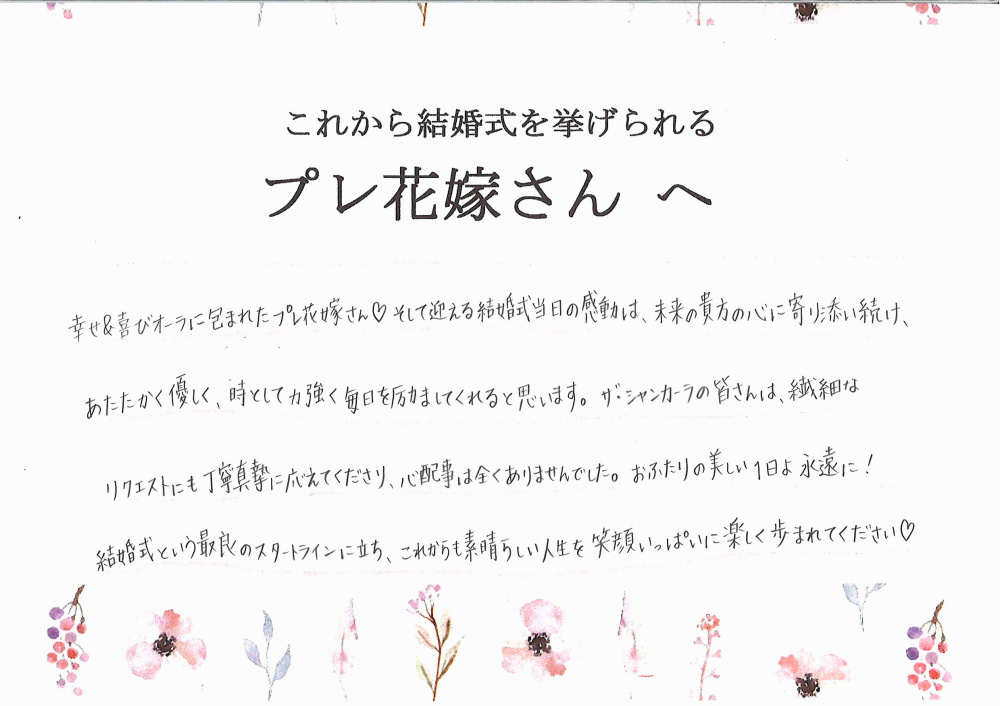 これから結婚式を挙げられる
プレ花嫁さん へ
幸せ&喜びオーラに包まれたプレ花嫁さん♡そして迎える結婚式当日の感動は、未来の貴方の心に寄り添い続け、
あたたかく優しく、時として力強く毎日を励ましてくれると思います。ザ・シャンカーラの皆さんは、繊細な
リクエストにも丁寧真摯に応えてくださり、心配事は全くありませんでした。おふたりの美しい1日よ永遠に！
結婚式という最良のスタートラインに立ち、これからも素晴らしい人生を笑顔いっぱいに楽しく歩まれてください♡